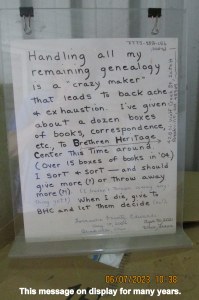 Handling all my
remaining genealogy
is a "crazy maker"
that leads to back ache
& exhaustion. I've given
about a dozen boxes
of books, correspondence,
etc, to Brethren Heritage
Center This time around
(Over 15 boxes of books in '04)
I sort & sort — and should
give more (?) or throw away
more (?)
When I die, give to
BHC and let them decide
06/07/2023 10:38
This message on display for many years.